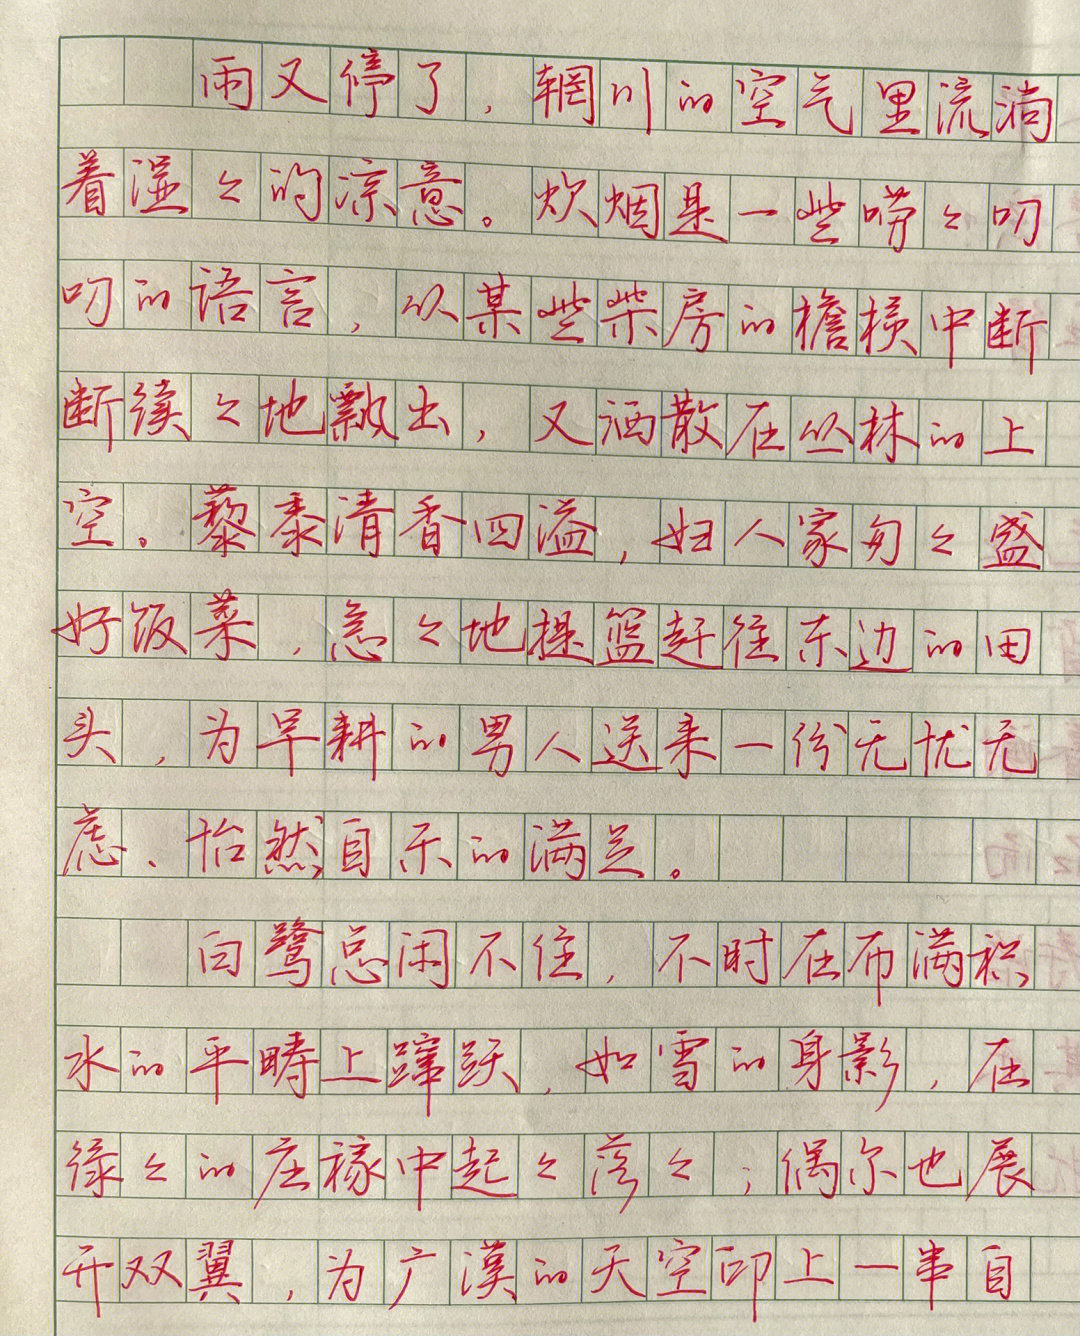 雨又停了，辋川的空气里流淌
着湿々的凉意。炊烟是一些唠々叨
叨的语言，从某些柴房的檐模中断
断续々地飘出，又洒散在丛林的上
空。藜黍清香四溢，妇人家匆々盛
好饭菜，急々地提篮赶往东边的田
头，为早耕的男人送来一份无忧无
虑、怡然自乐的满足。
白鹭总闲不住，不时在布满积
水的平畴上蹿跃，如雪的身影，在
绿々的庄稼中起々落々；偶尔也展
开双翼，为广漠的天空印上一串自